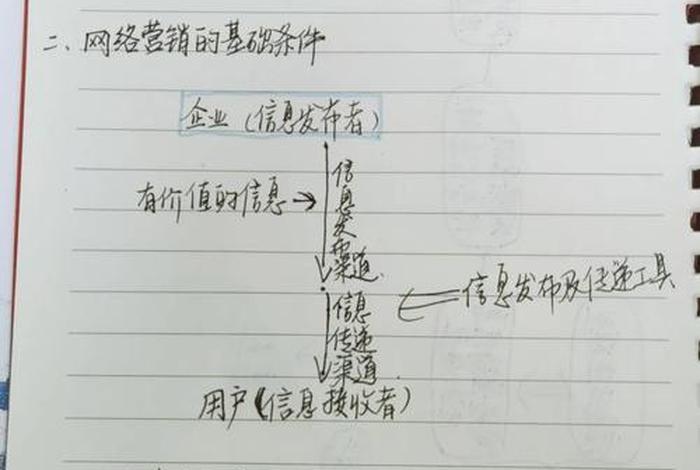 二、网络营销的基础条件
企业(信息发布者)
有价值的信息→
信息发布渠道
信息发布及传递工具
信息传递渠道
用户(信息接收者)